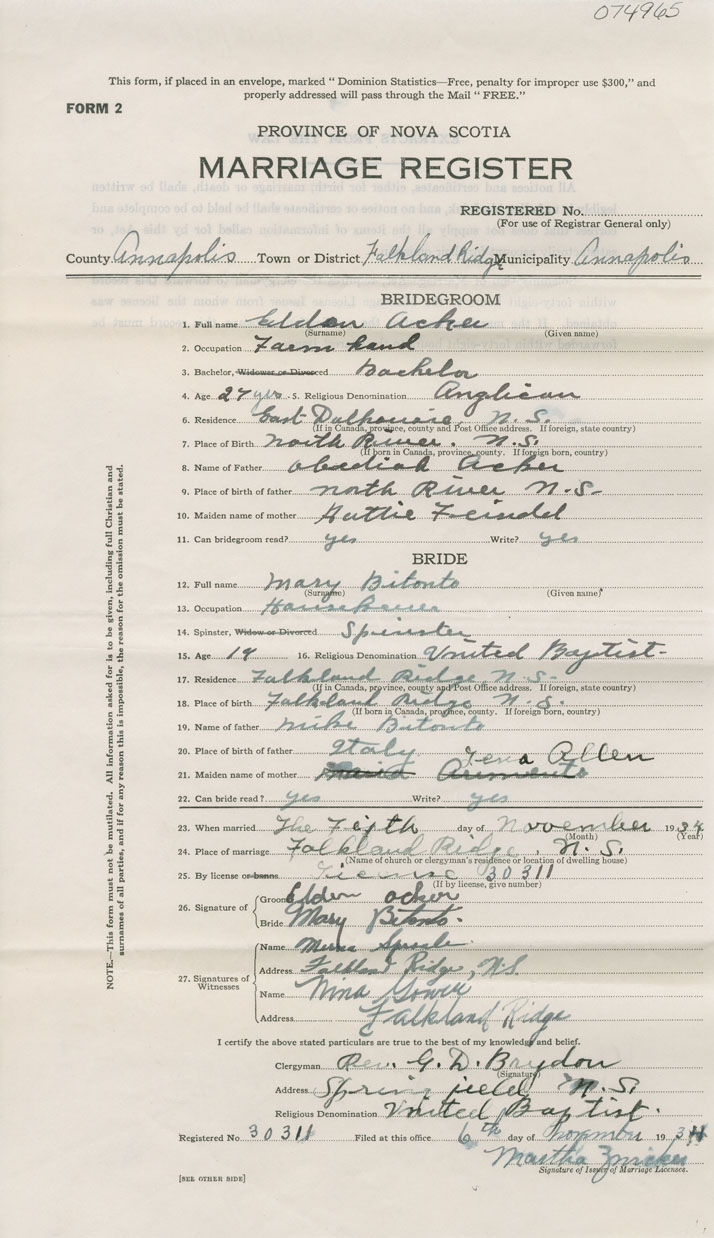 074965
This form, if placed in an envelope, marked "Dominion Statistics—Free, penalty for improper use $300," and
properly addressed will pass through the Mail "FREE."
FORM 2
PROVINCE OF NOVA SCOTIA
MARRIAGE REGISTER
REGISTERED No.
(For use of Registrar General only)
County Annapolis Town or District Falkland Ridge Municipality Annapolis
BRIDEGROOM
1. Full name Eldon Acker
(Surname) (Given name)
2. Occupation Farm hand
3. Bachelor, Widower or Divorced Bachelor
4. Age 27 yrs. 5. Religious Denomination Anglican
6. Residence East Dalhousie N.S.
(If in Canada, province, county and Post Office address. If foreign, state country)
7. Place of Birth North River. N.S.
(If born in Canada, province, county. If foreign born, country)
8. Name of Father Obediah Acker
9. Place of birth of father North River N.S.
10. Maiden name of mother Hattie Feindel
11. Can bridegroom read? yes Write? yes
BRIDE
12. Full name Mary Bitonto
(Surname) (Given name)
13. Occupation
14. Spinster, Widow or Divorced Spinster
15. Age 19 16. Religious Denomination United Baptist
17. Residence Falkland Ridge N.S.
(If in Canada, province, county and Post Office address. If foreign, state country)
18. Place of birth Falkland Ridge N.S.
(If born in Canada, province, county. If foreign born, country)
19. Name of father Mike Bitonto
20. Place of birth of father Italy
Tena Allen
21. Maiden name of mother
22. Can bride read? yes Write? yes
23. When married The Fifth day of November 1934
(Month) (Year)
24. Place of marriage Falkland Ridge, N.S.
(Name of church or clergyman's residence or location of dwelling house)
25. By license or banns License 30311
(If by license, give number)
26. Signature of Groom Eldon Acker
Bride Mary Bitonto.
27. Signatures of Witnesses
Name
Address Falkland Ridge, N.S.
Name Nina
Address Falkland Ridge
I certify the above stated particulars are true to the best of my knowledge and belief.
Clergyman Rev. G. D. Brydon
(Signature)
Address Springfield N.S.
Religious Denomination United Baptist.
Registered No 30311 Filed at this office 6th day of 1934
Martha Zwicker
Signature of Issuer of Marriage Licenses.
[SEE OTHER SIDE]
NOTE.—This form must not be mutilated. All information asked for is to be given, including full Christian and
surnames of all parties, and if for any reason this is impossible, the reason for the omission must be stated.